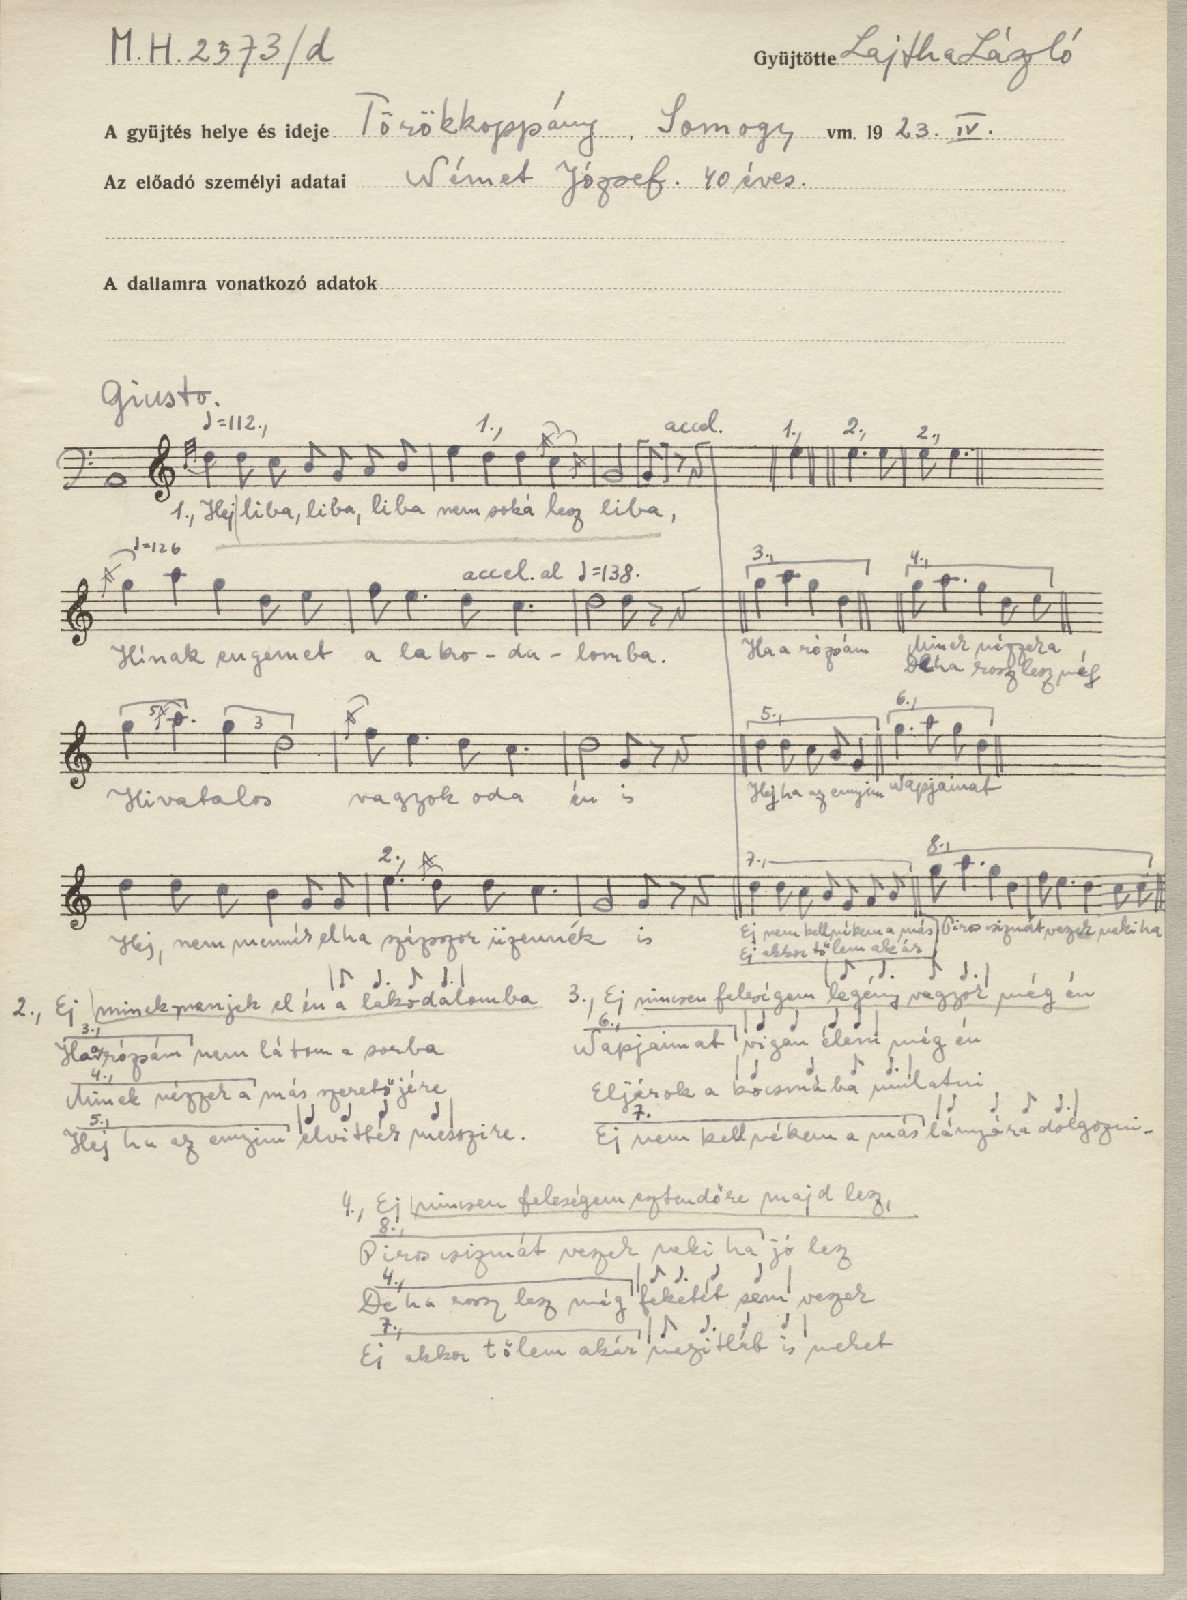 M.H. 2573/d
Gyüjtötte Lajtha László
A gyüjtés helye és ideje Törökkoppány, Somogy vm. 19 23. IV.
Az előadó személyi adatai Német József. 40 éves.
A dallamra vonatkozó adatok
Giusto.
♩=112., 1., accel. 1., 2., 2.,
1., Hej liba, liba, liba nem soká lesz liba,
♩=126 accel. al ♩=138. 3., 4.,
Hínak engemet a lako-da-lomba. Ha a rózsám Minek nézzek a
De ha rossz lesz még
5 3 5., 6.,
Hivatalos vagyok oda én is Hej ha az enyim Wápjaimat
2., 7., 8.,
Hej, nem mennék el ha százszor üzennék is Ej nem kell nékem a más Piros csizmát veszek neki ha
Ej akkor tőlem akár
2., Ej minek menjek el én a lakodalomba
3.,
Ha a rózsám nem látom a sorba
4.,
Minek nézzek a más szeretőjére
5.,
Hej ha az enyim elvitték messzire.
3., Ej nincsen feleségem legény vagyok még én
6.,
Wápjaimat vigan élem még én
Eljárok a kocsmába mulatni
7.
Ej nem kell nékem a más lányára dolgozni-
4., Ej nincsen feleségem esztendőre majd lesz,
8.,
Piros csizmát veszek neki ha jó lesz
4.,
De ha rossz lesz még feketét sem veszek
7.,
Ej akkor tőlem akár mezitláb is mehet